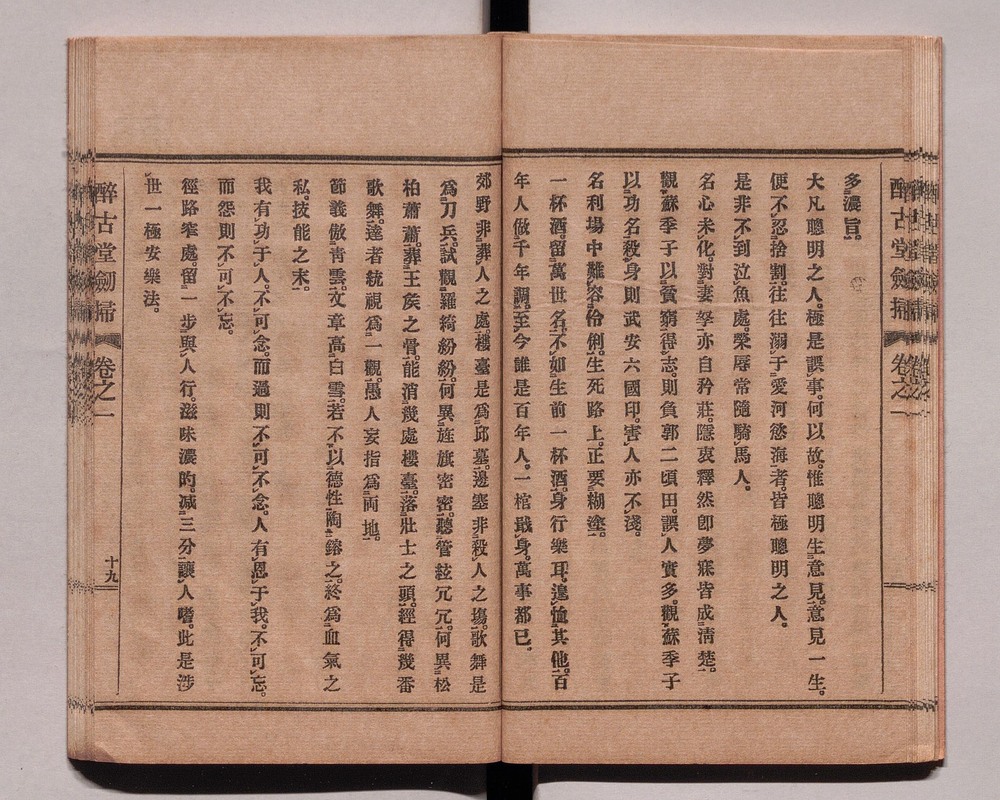 醉古堂劍掃
卷之一
多濃旨。
大凡聰明之人。極是誤事。何以故。惟聰明生意見。意見一生。
便不忍捨割。往往溺于愛河慾海者。皆極聰明之人。
是非不到泣魚處。榮辱常隨騎馬人。
名心未化。對妻孥亦自矜莊。隱衷釋然卽夢寐皆成淸楚。
觀蘇季子以貧窮得志。則負郭二頃田。誤人實多。觀蘇季子
以功名殺身則武安六國印。害人亦不淺。
名利場中難容伶俐。生死路上。正要糊塗。
一杯酒。留萬世名。不如生前一杯酒。身行樂耳。遑恤其他。百
年人做千年調。至今誰是百年人。一棺戢身。萬事都已。
郊野非葬人之處。樓臺是爲邱墓。邊塞非殺人之場。歌舞是
爲刀兵。試觀羅綺紛紛。何異旌旗密密。聽管絃冗冗。何異松
柏蕭蕭。葬王矦之骨。能消幾處樓臺。落壯士之頭。經得幾番
歌舞。達者統視爲一觀。愚人妄指爲兩地。
節義傲靑雲。文章高白雪。若不以德性陶鎔之。終爲血氣之
私。技能之末。
我有功于人。不可念。而過則不可不念。人有恩于我。不可忘。
而怨則不可不忘。
徑路窄處。留一步與人行。滋味濃的。減三分讓人嗜。此是涉
世一極安樂法。
醉古堂劍掃
卷之一
十九